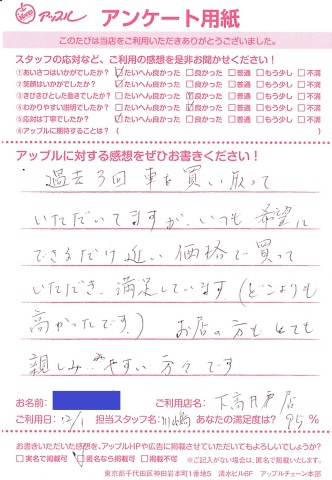 アップル アンケート用紙
このたびは当店をご利用いただきありがとうございました。
スタッフの応対など、ご利用の感想を是非お聞かせください！
①あいさつはいかがでしたか？ ☑たいへん良かった □良かった □普通 □もう少し □不満
②笑顔はいかがでしたか？ ☑たいへん良かった □良かった □普通 □もう少し □不満
③きびきびとした動きでしたか？ □たいへん良かった ☑良かった □普通 □もう少し □不満
④わかりやすい説明でしたか？ □たいへん良かった ☑良かった □普通 □もう少し □不満
⑤応対は丁寧でしたか？ ☑たいへん良かった □良かった □普通 □もう少し □不満
⑥アップルに期待することは？（ ）
アップルに対する感想をぜひお書きください！
過去3回 車を買い取って
いただいてますが、いつも希望に
できるだけ近い価格で買って
いただき、満足しています（どこよりも
高かったです。） お店の方もとても
親しみやすい方々です
お名前: ご利用店名: 下高井戸店
ご利用日: 12/1 担当スタッフ名: 川嶋 あなたの満足度は？ 95%
お書きいただいた感想を、アップルHPや広告に掲載させていただいてもよろしいでしょうか？
□実名で掲載可 ☑匿名なら掲載可 □掲載不可 ※ご記入がない場合は、匿名で掲載いたします。
東京都千代田区神田岩本町1番地5 清水ビル6F アップルチェーン本部